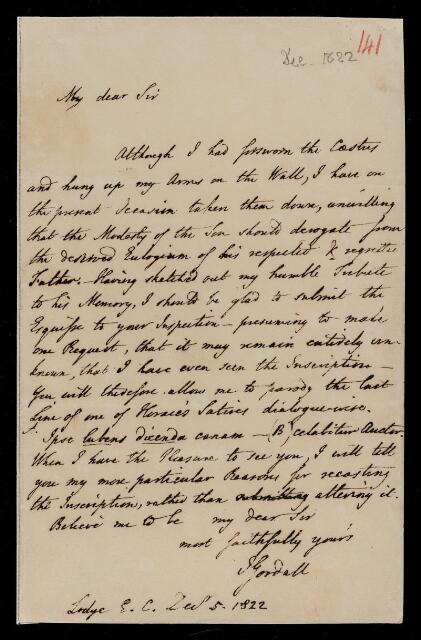 Dec. 1822
141
My dear Sir
Although I had forsworn the Cæstus
and hung up my Arms on the Wall, I have on
the present Occasion taken them down, unwilling
that the Modesty of the Son should derogate from
the deserved Eulogium of his respected & regretted
Father. Having sketched out my humble Tribute
to his Memory, I should be glad to submit the
Esquisse to your Inspection — presuming to make
one Request, that it may remain entirely un-
known, that I have even seen the Inscription —
You will therefore allow me to parody the last
Line of one of Horace's Satires dialogue-wise.
Ipse lubens dicenda canam — B celabitur Auctor.
When I have the Pleasure to see you, I will tell
you my more particular Reasons for recasting
the Inscription, rather than altering it.
Believe me to be my dear Sir
most faithfully yours
J Goodall
Lodge E. C. Decr 5. 1822